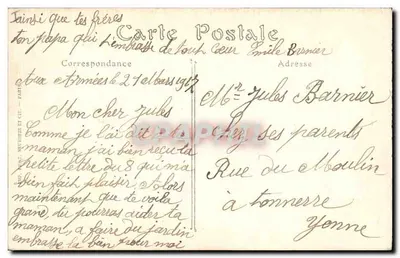 ainsi que tes frères
ton papa qui t'embrasse de tout cœur Emile Barnier
Carte Postale
Correspondance
Adresse
Aux Armées le 27 Mars 1917
Mon cher Jules
Comme je l'ai dit
maman j'ai bien reçu ta
petite lettre du 8 qui m'a
bien fait plaisir, alors
maintenant que te voilà
grand, tu pourras aider ta
maman, a faire du jardin
embrasse la bien pour moi
Mr Jules Barnier
Chez ses parents
Rue du Moulin
à tonnerre
Yonne